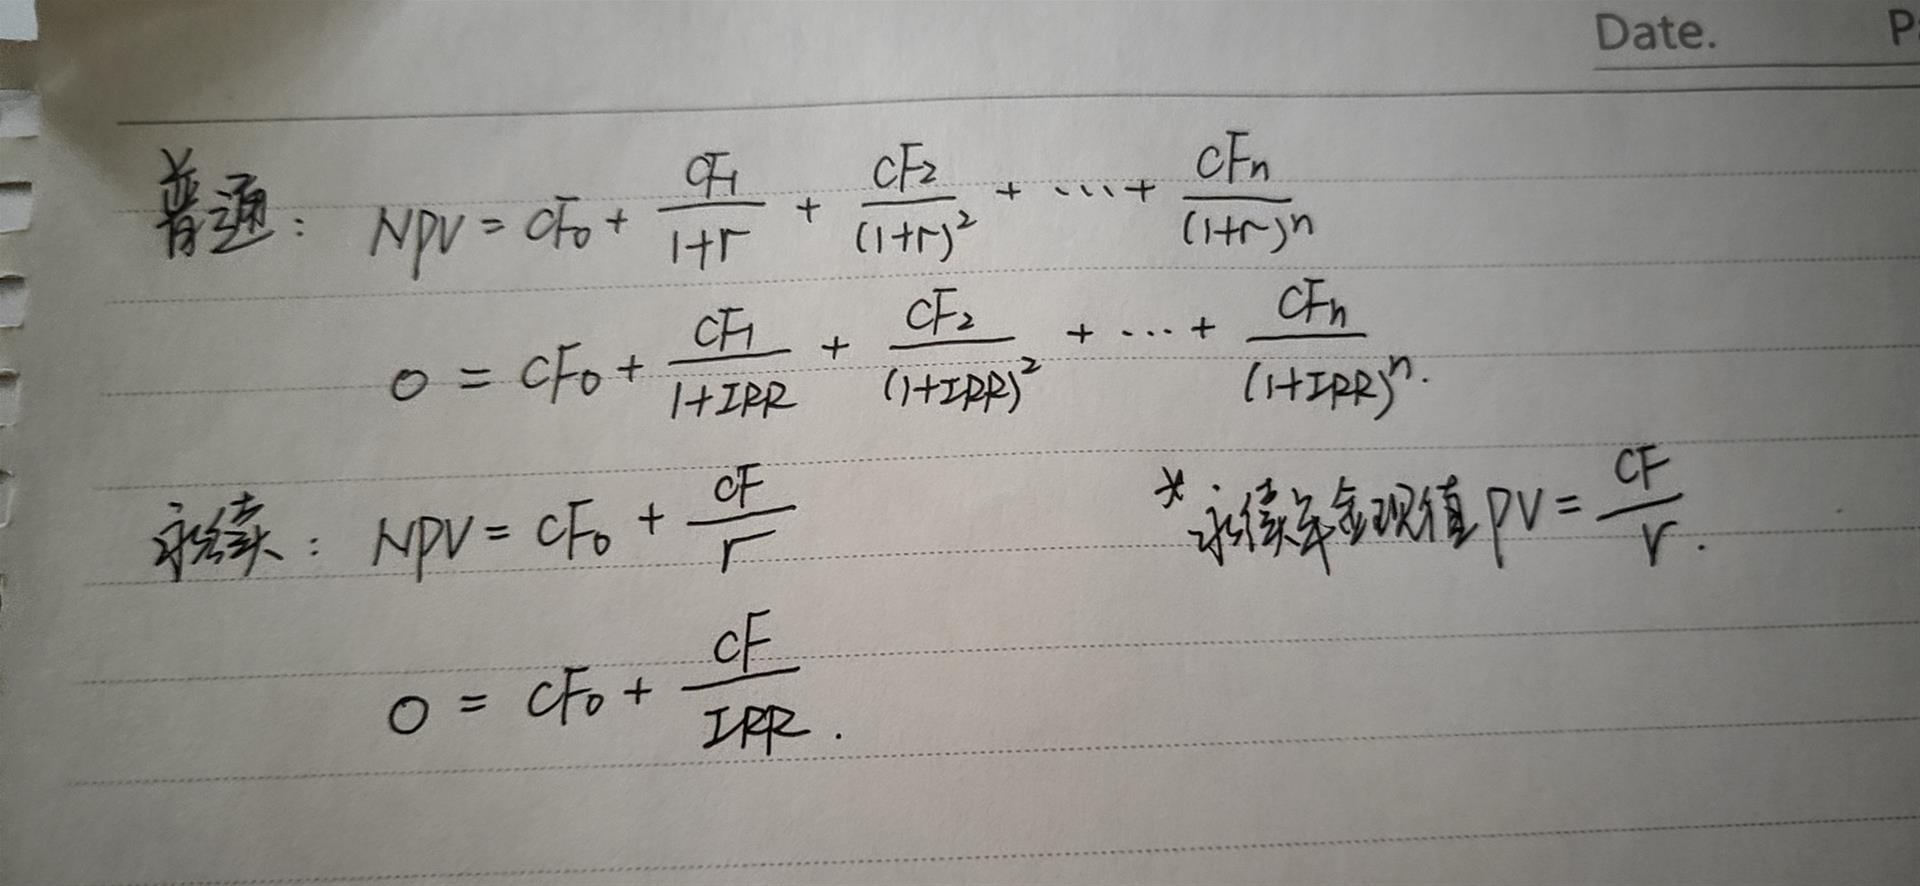 Date.
普通: NPV = CF₀ + CF₁/(1+r) + CF₂/(1+r)² + ... + CFn/(1+r)ⁿ
0 = CF₀ + CF₁/(1+IRR) + CF₂/(1+IRR)² + ... + CFn/(1+IRR)ⁿ.
永续: NPV = CF₀ + CF/r
*永续年金现值 PV = CF/r.
0 = CF₀ + CF/IRR.